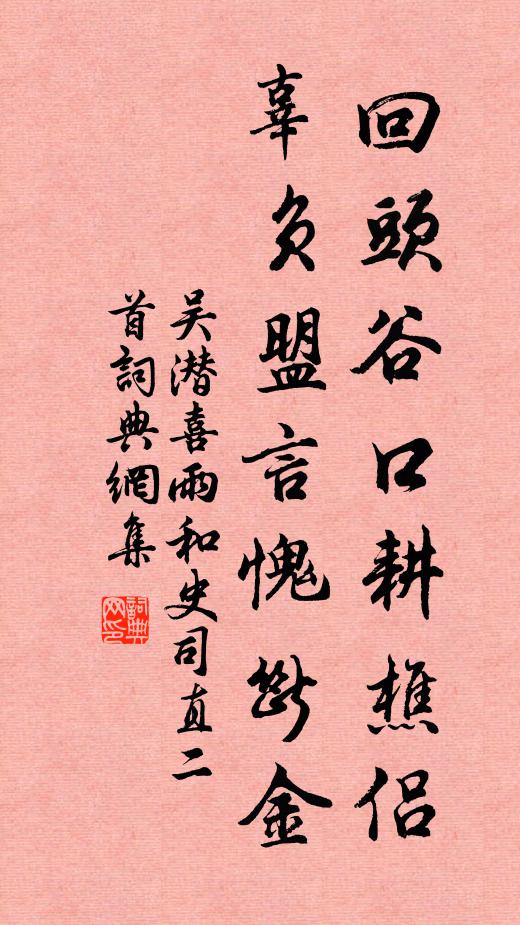 回頭谷口耕樵侶
辜負盟言愧斷金
吴潜喜雨和史司直二
首詞典網集
詞典
网印